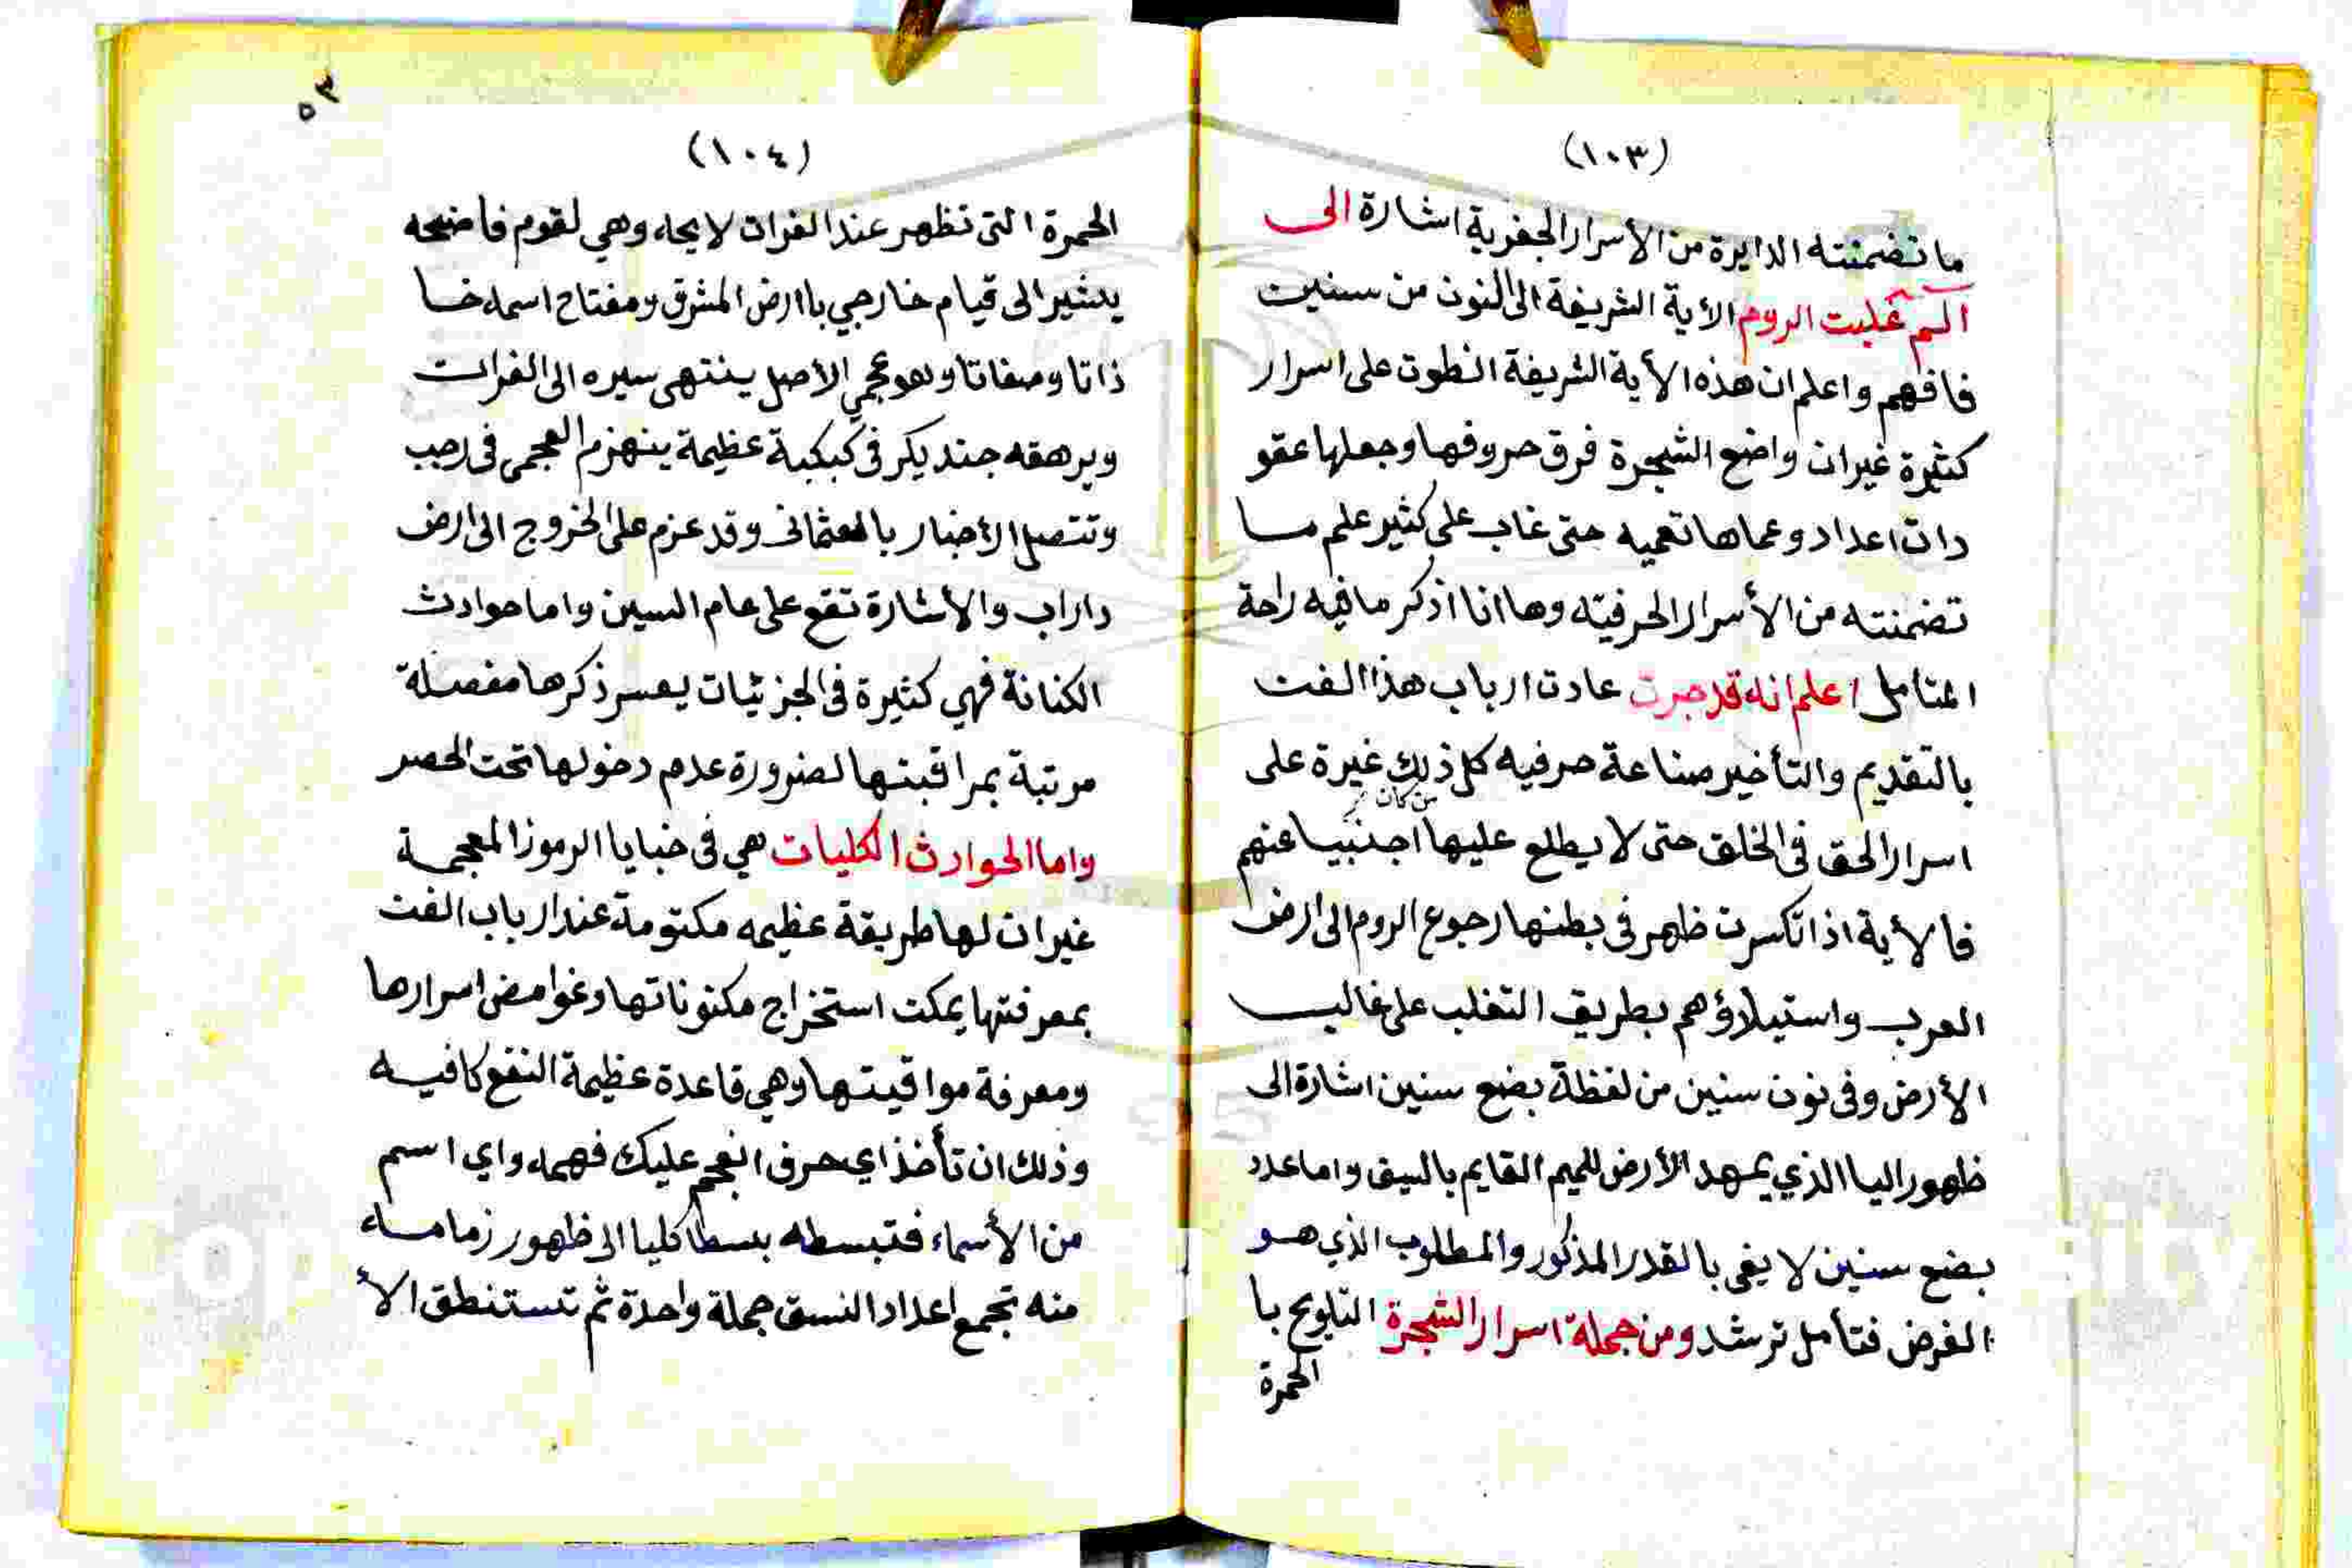 (١٠٣)
ما تضمنته الدايرة من الأسرار الجفرية اشارة الى
الم غلبت الروم الأية الشريفة الى النون من سنين
فافهم واعلم ان هذه الأية الشريفة انطوت على اسرار
كثيرة غير ان واضع الشجرة فرق حروفها وجعلها عقو
دات اعداد وعماها تعميه حتى غاب على كثير علم ما
تضمنته من الأسرار الحرفيته وها انا اذكر مافيه راحة
المتامل اعلم انه قد جرت عادت ارباب هذا الفن
بالتقديم والتأخير صناعة حرفيه كل ذلك غيرة على
من كان
اسرار الحق فى الخلق حتى لا يطلع عليها اجنبيا عنهم
فالأية اذا تكسرت ظهر فى بطنها رجوع الروم الى ارض
العرب واستيلاؤهم بطريق التغلب على غالب
الأرض وفى نون سنين من لفظة بضع سنين اشارة الى
ظهور اليا الذي يمهد الأرض للميم القايم بالسيف واما عدد
بضع سنين لا يفى بالقدر المذكور والمطلوب الذي هو
الغرض فتأمل ترشد ومن جملة اسرار الشجرة التلويح با
الحمرة
٥٣
(١٠٤)
الحمرة التى تظهر عند الفرات لايحه وهي لقوم فاضحه
يشير الى قيام خارجي باارض المشرق ومفتاح اسمه خا
ذاتا وصفاتا وهو عجمي الأصل ينتهى سيره الى الفرات
ويرهقه جند بكر فى كبكبة عظيمة ينهزم العجمى فى رجب
وتتصل الأخبار بالعثمانى وقد عزم على الخروج الى ارض
داراب والأشارة تقع على عام السين واما حوادث
الكنانة فهي كثيرة فى الجزئيات يعسر ذكرها مفصلة
مرتبة بمراقبنها لضرورة عدم دخولها تحت الحصر
واما الحوادث الكليات هي فى خبايا الرموز المعجمة
غير ان لها طريقة عظيمه مكتومة عند ارباب الفن
بمعرفتها يمكن استخراج مكنوناتها وغوامض اسرارها
ومعرفة مواقيتها وهي قاعدة عظيمة النفع كافيه
وذلك ان تأخذ اي حرف انعجم عليك فهمه واي اسم
من الأسماء فتبسطه بسطا كليا الى ظهور زمامه
منه تجمع اعداد النسق جملة واحدة ثم تستنطق الأ